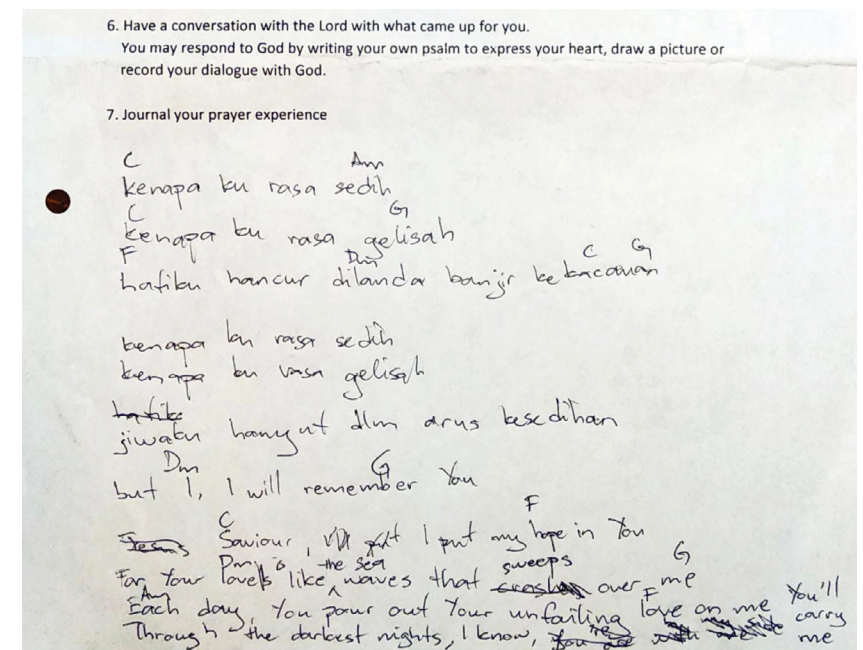 6. Have a conversation with the Lord with what came up for you.
You may respond to God by writing your own psalm to express your heart, draw a picture or
record your dialogue with God.
7. Journal your prayer experience
C Am
kenapa ku rasa sedih
C G
kenapa ku rasa gelisah
F Dm C G
hatiku hancur dilanda banjir kekacauan
kenapa ku rasa sedih
kenapa ku rasa gelisah
hatiku
jiwaku hanyut dlm arus kesedihan
Dm G
but I, I will remember You
C F
Jesus Saviour, I put my hope in You
Dm is the sea sweeps G
For Your love's like waves that crashes over me
Am F You'll
Each day, You pour out Your unfailing love on me carry
Through the darkest nights, I know, me